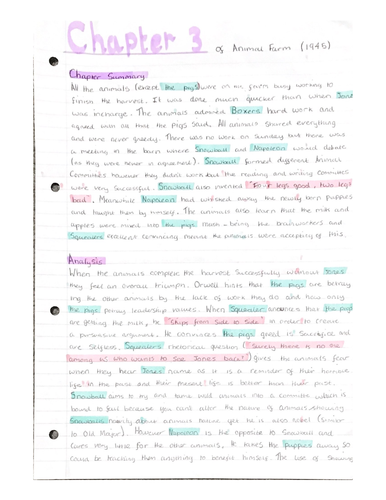 Chapter 3 of Animal Farm (1945)
Chapter Summary
All the animals (except the pigs) were on the farm busy working to
finish the harvest. It was done much quicker than when Jones
was incharge. The animals admired Boxers hard work and
agreed with all that the pigs said. All animals shared everything
and were never greedy. There was no work on Sunday but there was
a meeting in the barn where Snowball and Napoleon would debate
(as they were never in agreement). Snowball formed different Animal
Committees however they didn't work but the reading and writing committees
were very successful. Snowball also invented "Four legs good, two legs
bad". Meanwhile Napoleon had away the newly born puppies
and taught them by himself. The animals also learn that the milk and
apples were mixed into the pigs food - being the brainworkers and
Squealers convincing the animals were accepting of this.
Analysis
When the animals complete the harvest successfully without Jones
they feel an overall triumph. Orwell hints that the pigs are betray
ing the other animals by the lack of work they do and how only
the pigs leadership names. When Squealer announces that the pigs
are getting the milk, he "Skips from Side to Side" in order to create
a persuasive argument. He the pigs great is sacrifice and
are selfless. Squealers rhetorical question ("Surely there is no one
among us who wants to see Jones back?") gives the animals fear
when they hear Jones name as it is a reminder of their
life in the past and their present life is better than their past.
Snowball aims to try and tame wild animals into a committee which is
bound to fail because you cant alter the nature of animals showing
Snowballs nature yet he is also (similar
to Old Major). However Napoleon is the opposite to Snowball and
cares very less for the other animals. He takes the puppies away so
could be training them anything to benefit himself. The of